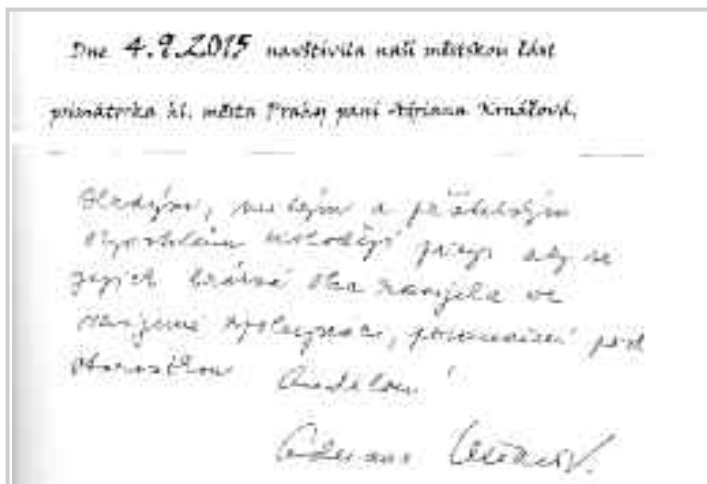 Dne 4.9.2015 navštívila naši městskou část
primátorka hl. města Prahy paní Adriana Krnáčová.
milým a přátelským
Koloděj přeji aby se
jejich krásná obec rozvíjela ve
vzájemné spolupráci, porozumění pod
starostkou
Adriana